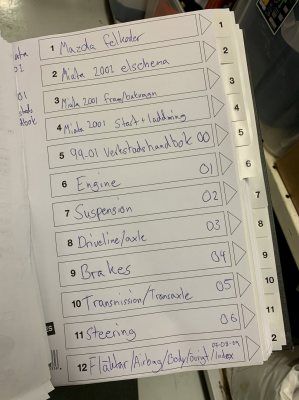 1 Mazda felkoder
2 Miata 2001 elschema
3 Miata 2001 fram/bakvagn
4 Miata 2001 Start + laddning
5 99-01 Verkstadshandbok 00
6 Engine 01
7 Suspension 02
8 Driveline/axle 03
9 Brakes 04
10 Transmission/Transaxle 05
11 Steering 06
12 Fläktar/Airbag/Body/övrigt/Index 07-08-09
1
2
3
4
5
6
7
8
9
10
11